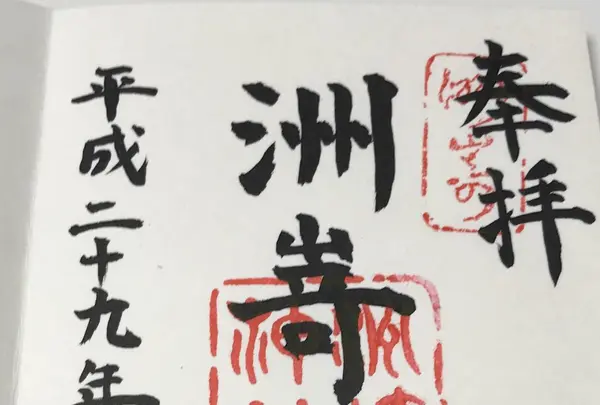 奉拝
洲嵜
平成二十九年